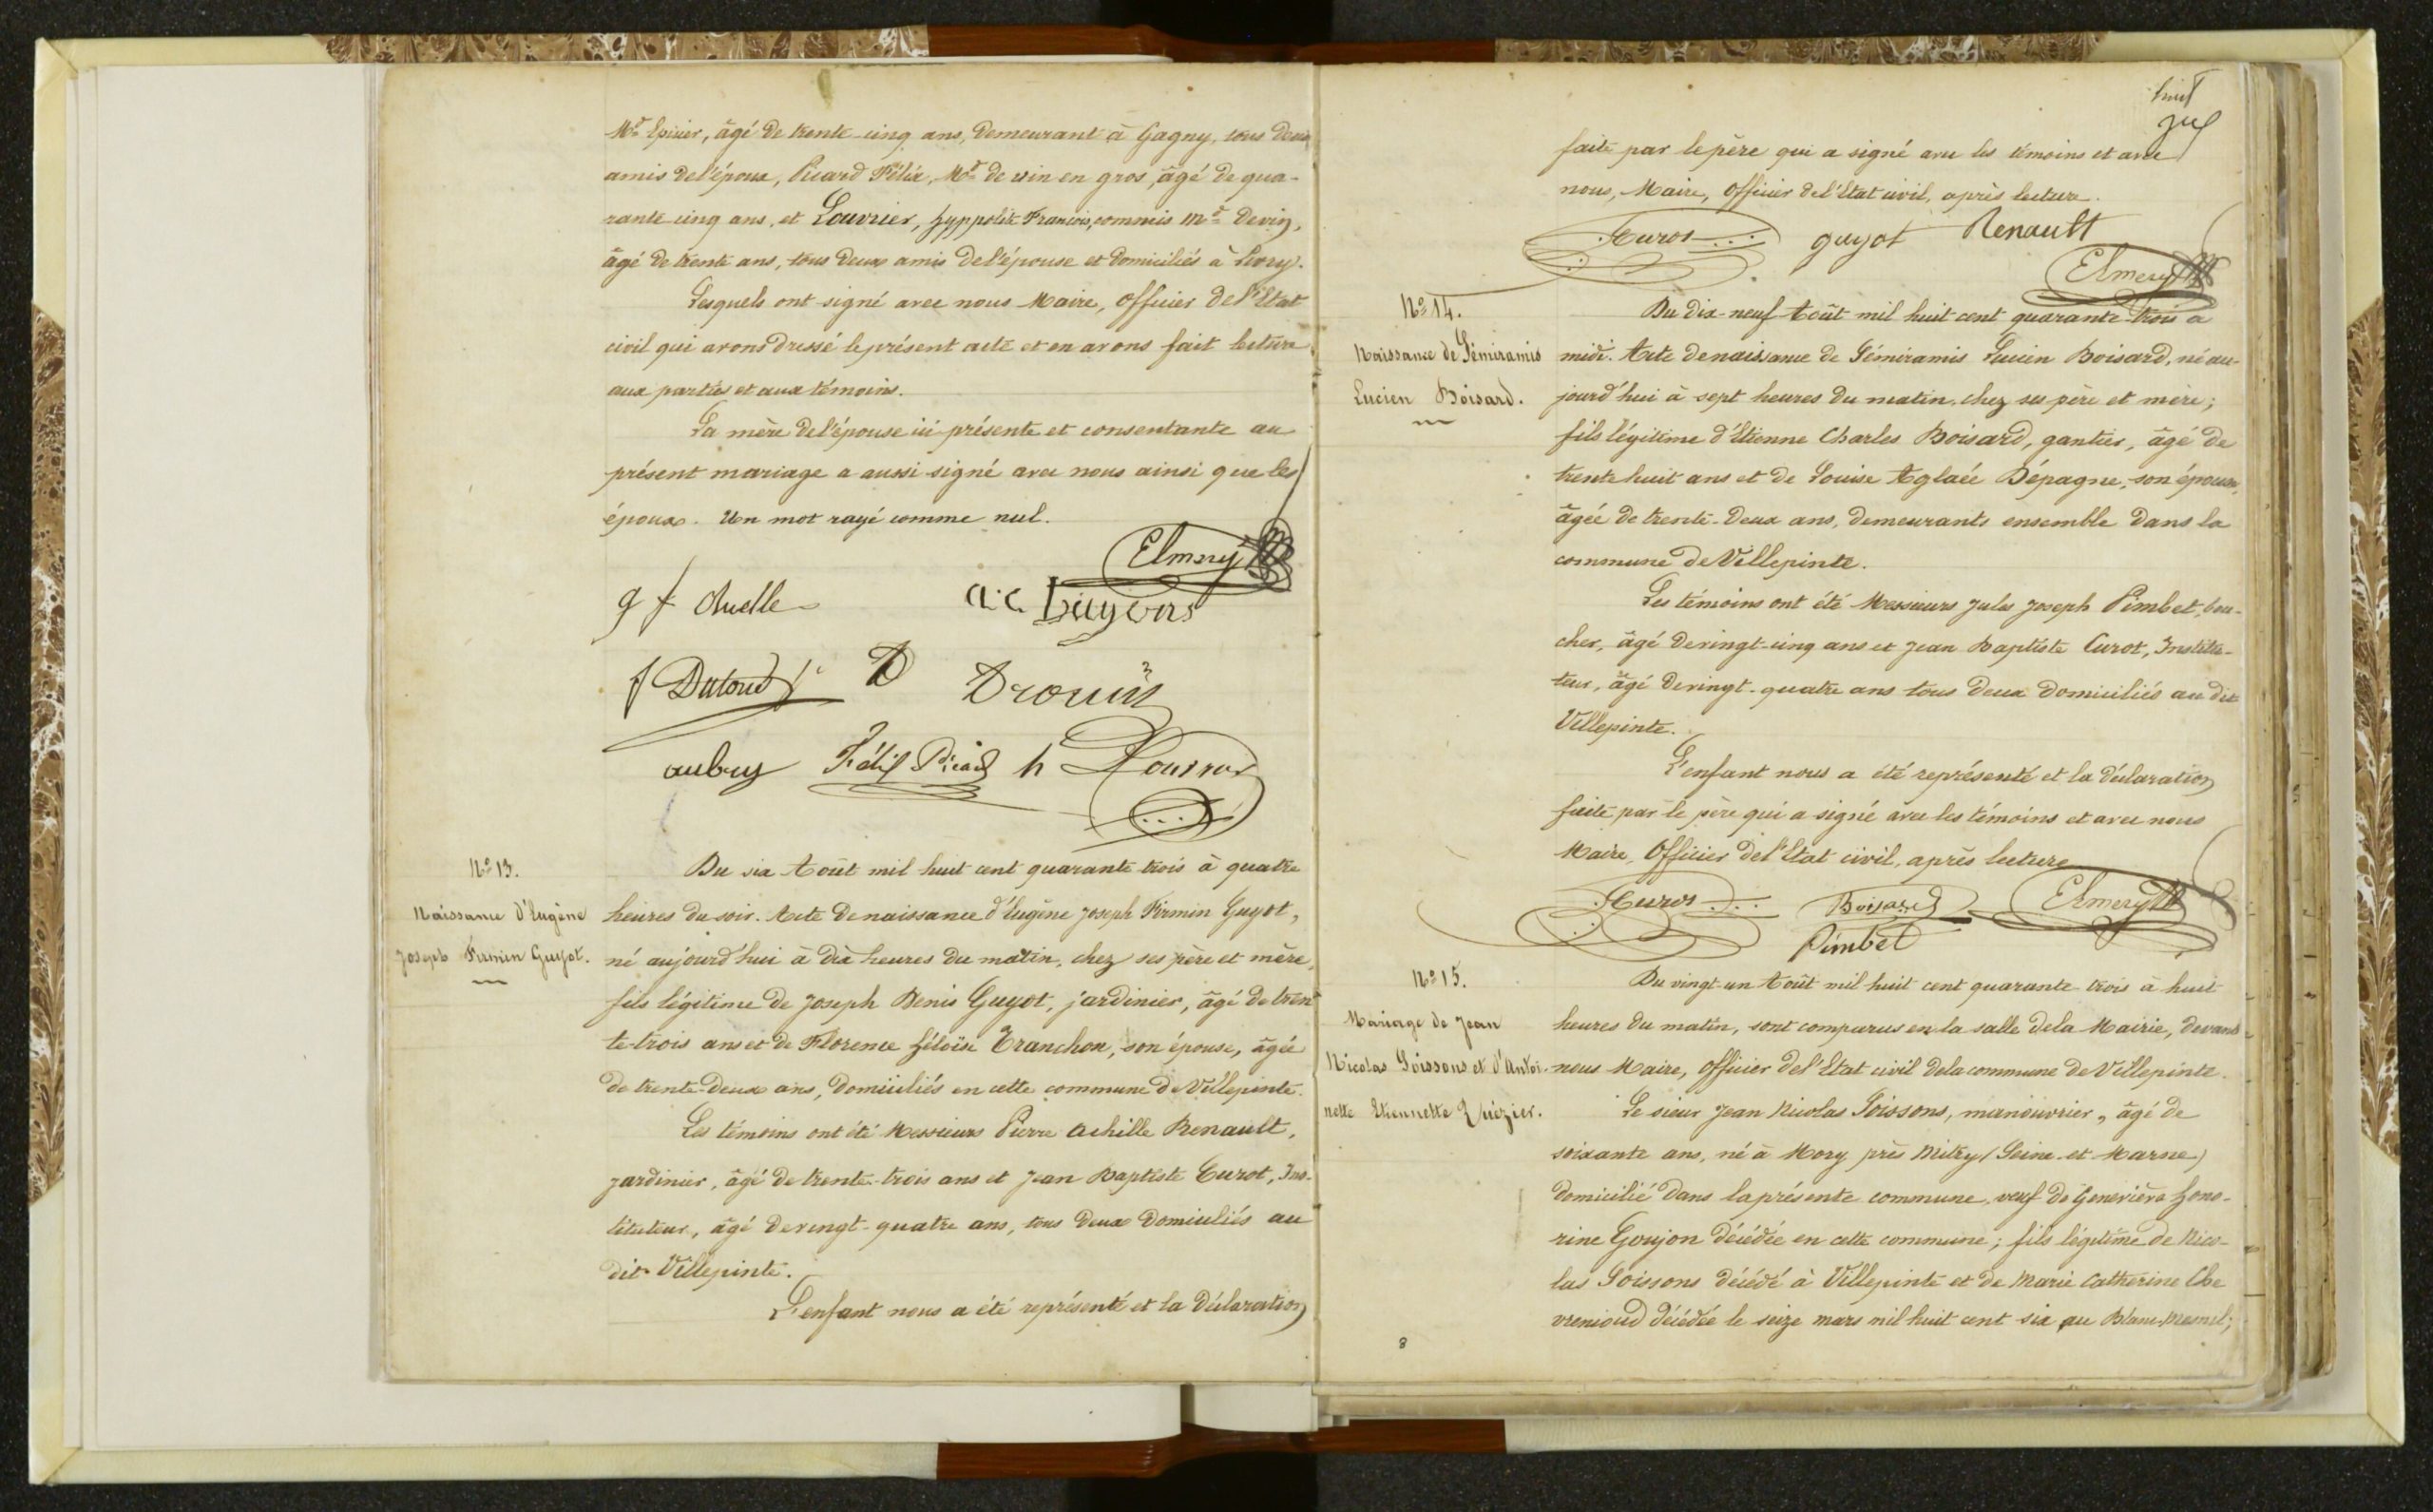 Md Epicier, âgé de trente-cinq ans, demeurant à Gagny, tous deux
amis de l'époux, Picard Félix, Md de vin en gros, âgé de qua-
rante cinq ans, et Louvrier, hyppolite François, commis md de vin,
âgé de trente ans, tous deux amis de l'épouse et domiciliés à Livry.
Lesquels ont signé avec nous Maire, officier de l'Etat
civil qui avons dressé le présent acte et en avons fait lecture
aux parties et aux témoins.
La mère de l'épouse ici présente et consentante au
présent mariage a aussi signé avec nous ainsi que les
époux. Un mot rayé comme nul.
Elmery
g f
a.c.
f D
Drouin
aubry Félix Picard h
No 13.
Naissance d'Eugène
Joseph Firmin Guyot.
Du six Août mil huit cent quarante trois à quatre
heures du soir. Acte de naissance d'Eugène Joseph Firmin Guyot,
né aujourd'hui à dix heures du matin, chez ses père et mère,
fils légitime de Joseph Denis Guyot, jardinier, âgé de tren
te-trois ans et de Florence héloïse Tranchon, son épouse, âgée
de trente-deux ans, domiciliés en cette commune de Villepinte.
Les témoins ont été Messieurs Pierre Achille Renault,
jardinier, âgé de trente-trois ans et Jean Baptiste Curot, Ins-
tituteur, âgé de vingt-quatre ans, tous deux domiciliés au
dit Villepinte.
L'enfant nous a été représenté et la déclaration
huit
faite par le père qui a signé avec les témoins et avec
nous, Maire, Officier de l'Etat civil, après lecture.
Curot guyot Renault
Elmery
No 14.
Naissance de Sémiramis
Lucien Boisard.
Du dix-neuf Août mil huit cent quarante-trois à
midi. Acte de naissance de Sémiramis Lucien Boisard, né au-
jourd'hui à sept heures du matin, chez ses père et mère;
fils légitime d'Etienne Charles Boisard, gantier, âgé de
trente huit ans et de Louise Aglaée Dépagne, son épouse,
âgée de trente-deux ans, demeurants ensemble dans la
commune de Villepinte.
Les témoins ont été Messieurs Jules Joseph Pimbet, bou-
cher, âgé de vingt-cinq ans et Jean Baptiste Curot, Institu-
teur, âgé de vingt-quatre ans tous deux domiciliés au dit
Villepinte.
L'enfant nous a été représenté et la déclaration
faite par le père qui a signé avec les témoins et avec nous
Maire, Officier de l'Etat civil, après lecture
Curot Boisard Elmery
Pimbet
No 15.
Mariage de Jean
Nicolas Soissons et d'Antoi-
nette Etiennette
Du vingt-un Août mil huit cent quarante-trois à huit
heures du matin, sont comparus en la salle de la Mairie, devant
nous Maire, officier de l'Etat civil de la commune de Villepinte.
Le sieur Jean Nicolas Soissons, manouvrier, âgé de
soixante ans, né à Mory près Mitry (Seine-et-Marne)
domicilié dans la présente commune, veuf de Geneviève hono-
rine Goujon décédée en cette commune; fils légitime de Nico-
las Soissons décédé à Villepinte et de Marie Catherine Che
décédée le seize mars mil huit cent six au Blanc-Mesnil;
8